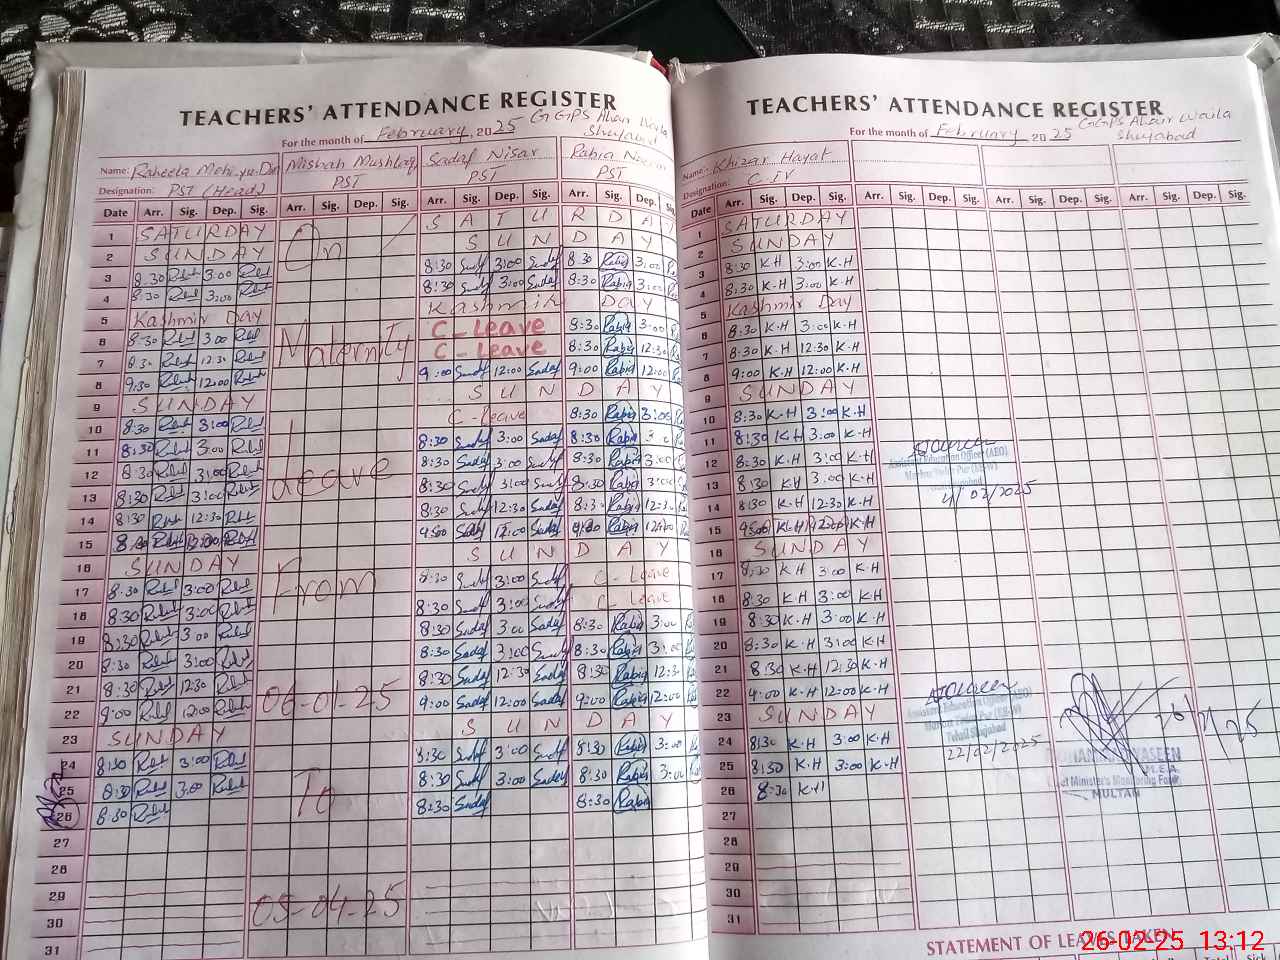 TEACHERS' ATTENDANCE REGISTER
For the month of February, 2025 GGPS Alair Waila
Shujabad
Name: Raheela Mohi-yu-Din Misbah Mushtaq Sadaf Nisar Rabia
Designation: PST (Head) PST PST PST
Date Arr. Sig. Dep. Sig. Arr. Sig. Dep. Sig. Arr. Sig. Dep. Sig. Arr. Sig. Dep. Sig.
1 SATURDAY On SATURDAY
2 SUNDAY SUNDAY
3 8:30 3:00 8:30 Sadaf 3:00 Sadaf 8:30 Rabia 3:00
4 8:30 3:00 8:30 Sadaf 3:00 Sadaf 8:30 Rabia 3:00
5 Kashmir DAY Kashmir DAY
6 8:30 3:00 Maternity C-Leave 8:30 Rabia 3:00
7 8:30 12:30 C-Leave 8:30 Rabia 12:30
8 9:30 12:00 9:00 Sadaf 12:00 Sadaf 9:00 Rabia 12:00
9 SUNDAY SUNDAY
10 8:30 3:00 C-leave 8:30 Rabia 3:00
11 8:30 3:00 8:30 Sadaf 3:00 Sadaf 8:30 Rabia 3:00
12 8:30 3:00 Leave 8:30 Sadaf 3:00 Sadaf 8:30 Rabia 3:00
13 8:30 3:00 8:30 Sadaf 3:00 Sadaf 8:30 Rabia 3:00
14 8:30 12:30 8:30 Sadaf 12:30 Sadaf 8:30 Rabia 12:30
15 Sadaf Sadaf Rabia
16 SUNDAY SUNDAY
17 8:30 3:00 From 8:30 Sadaf 3:00 Sadaf C-Leave
18 8:30 3:00 8:30 Sadaf 3:00 Sadaf C-Leave
19 8:30 3:00 8:30 Sadaf 3:00 Sadaf 8:30 Rabia 3:00
20 8:30 3:00 8:30 Sadaf 3:00 Sadaf 8:30 Rabia 3:00
21 8:30 12:30 06-01-25 8:30 Sadaf 12:30 Sadaf 8:30 Rabia 12:30
22 9:00 12:00 9:00 Sadaf 12:00 Sadaf 9:00 Rabia 12:00
23 SUNDAY SUNDAY
24 8:30 3:00 8:30 Sadaf 3:00 Sadaf 8:30 Rabia 3:00
25 8:30 3:00 To 8:30 Sadaf 3:00 Sadaf 8:30 Rabia 3:00
26 8:30 8:30 Sadaf 8:30 Rabia
27
28
29 05-04-25
30
31
TEACHERS' ATTENDANCE REGISTER
For the month of February 2025 GGPS Alair Waila
Shujabad
Name: Khizar Hayat
Designation: C-IV
Date Arr. Sig. Dep. Sig. Arr. Sig. Dep. Sig. Arr. Sig. Dep. Sig. Arr. Sig. Dep. Sig.
1 SATURDAY
2 SUNDAY
3 8:30 K.H 3:00 K.H
4 8:30 K.H 3:00 K.H
5 Kashmir Day
6 8:30 K.H 3:00 K.H
7 8:30 K.H 12:30 K.H
8 9:00 K.H 12:00 K.H
9 SUNDAY
10 8:30 K.H 3:00 K.H
11 8:30 K.H 3:00 K.H
12 8:30 K.H 3:00 K.H Assistant Education Officer (AEO)
13 8:30 K.H 3:00 K.H
14 8:30 K.H 12:30 K.H 02/2025
15 K.H K.H
16 SUNDAY
17 8:30 K.H 3:00 K.H
18 8:30 K.H 3:00 K.H
19 8:30 K.H 3:00 K.H
20 8:30 K.H 3:00 K.H
21 8:30 K.H 12:30 K.H
22 9:00 K.H 12:00 K.H Assistant Education Officer (AEO)
23 SUNDAY Tehsil Shujabad
24 8:30 K.H 3:00 K.H 22/02/2025
25 8:30 K.H 3:00 K.H YASEEN M.E.A.
26 8:30 K.H Chief Minister's Monitoring Force
MULTAN
27
28
29
30
31
STATEMENT OF LEAVES TAKEN
26-02 25 13:12